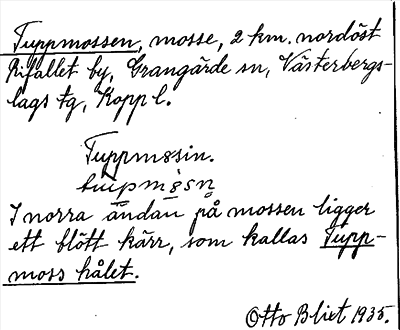 Tuppmossen, mosse, 2 km. nordöst
Rifallet by, Grangärde sn, Västerbergs-
lags tg, Kopp l.
Tuppmosin.
I norra ändan på mossen ligger
ett blött kärr, som kallas Tupp-
moss hålet.
Otto Blixt 1935.